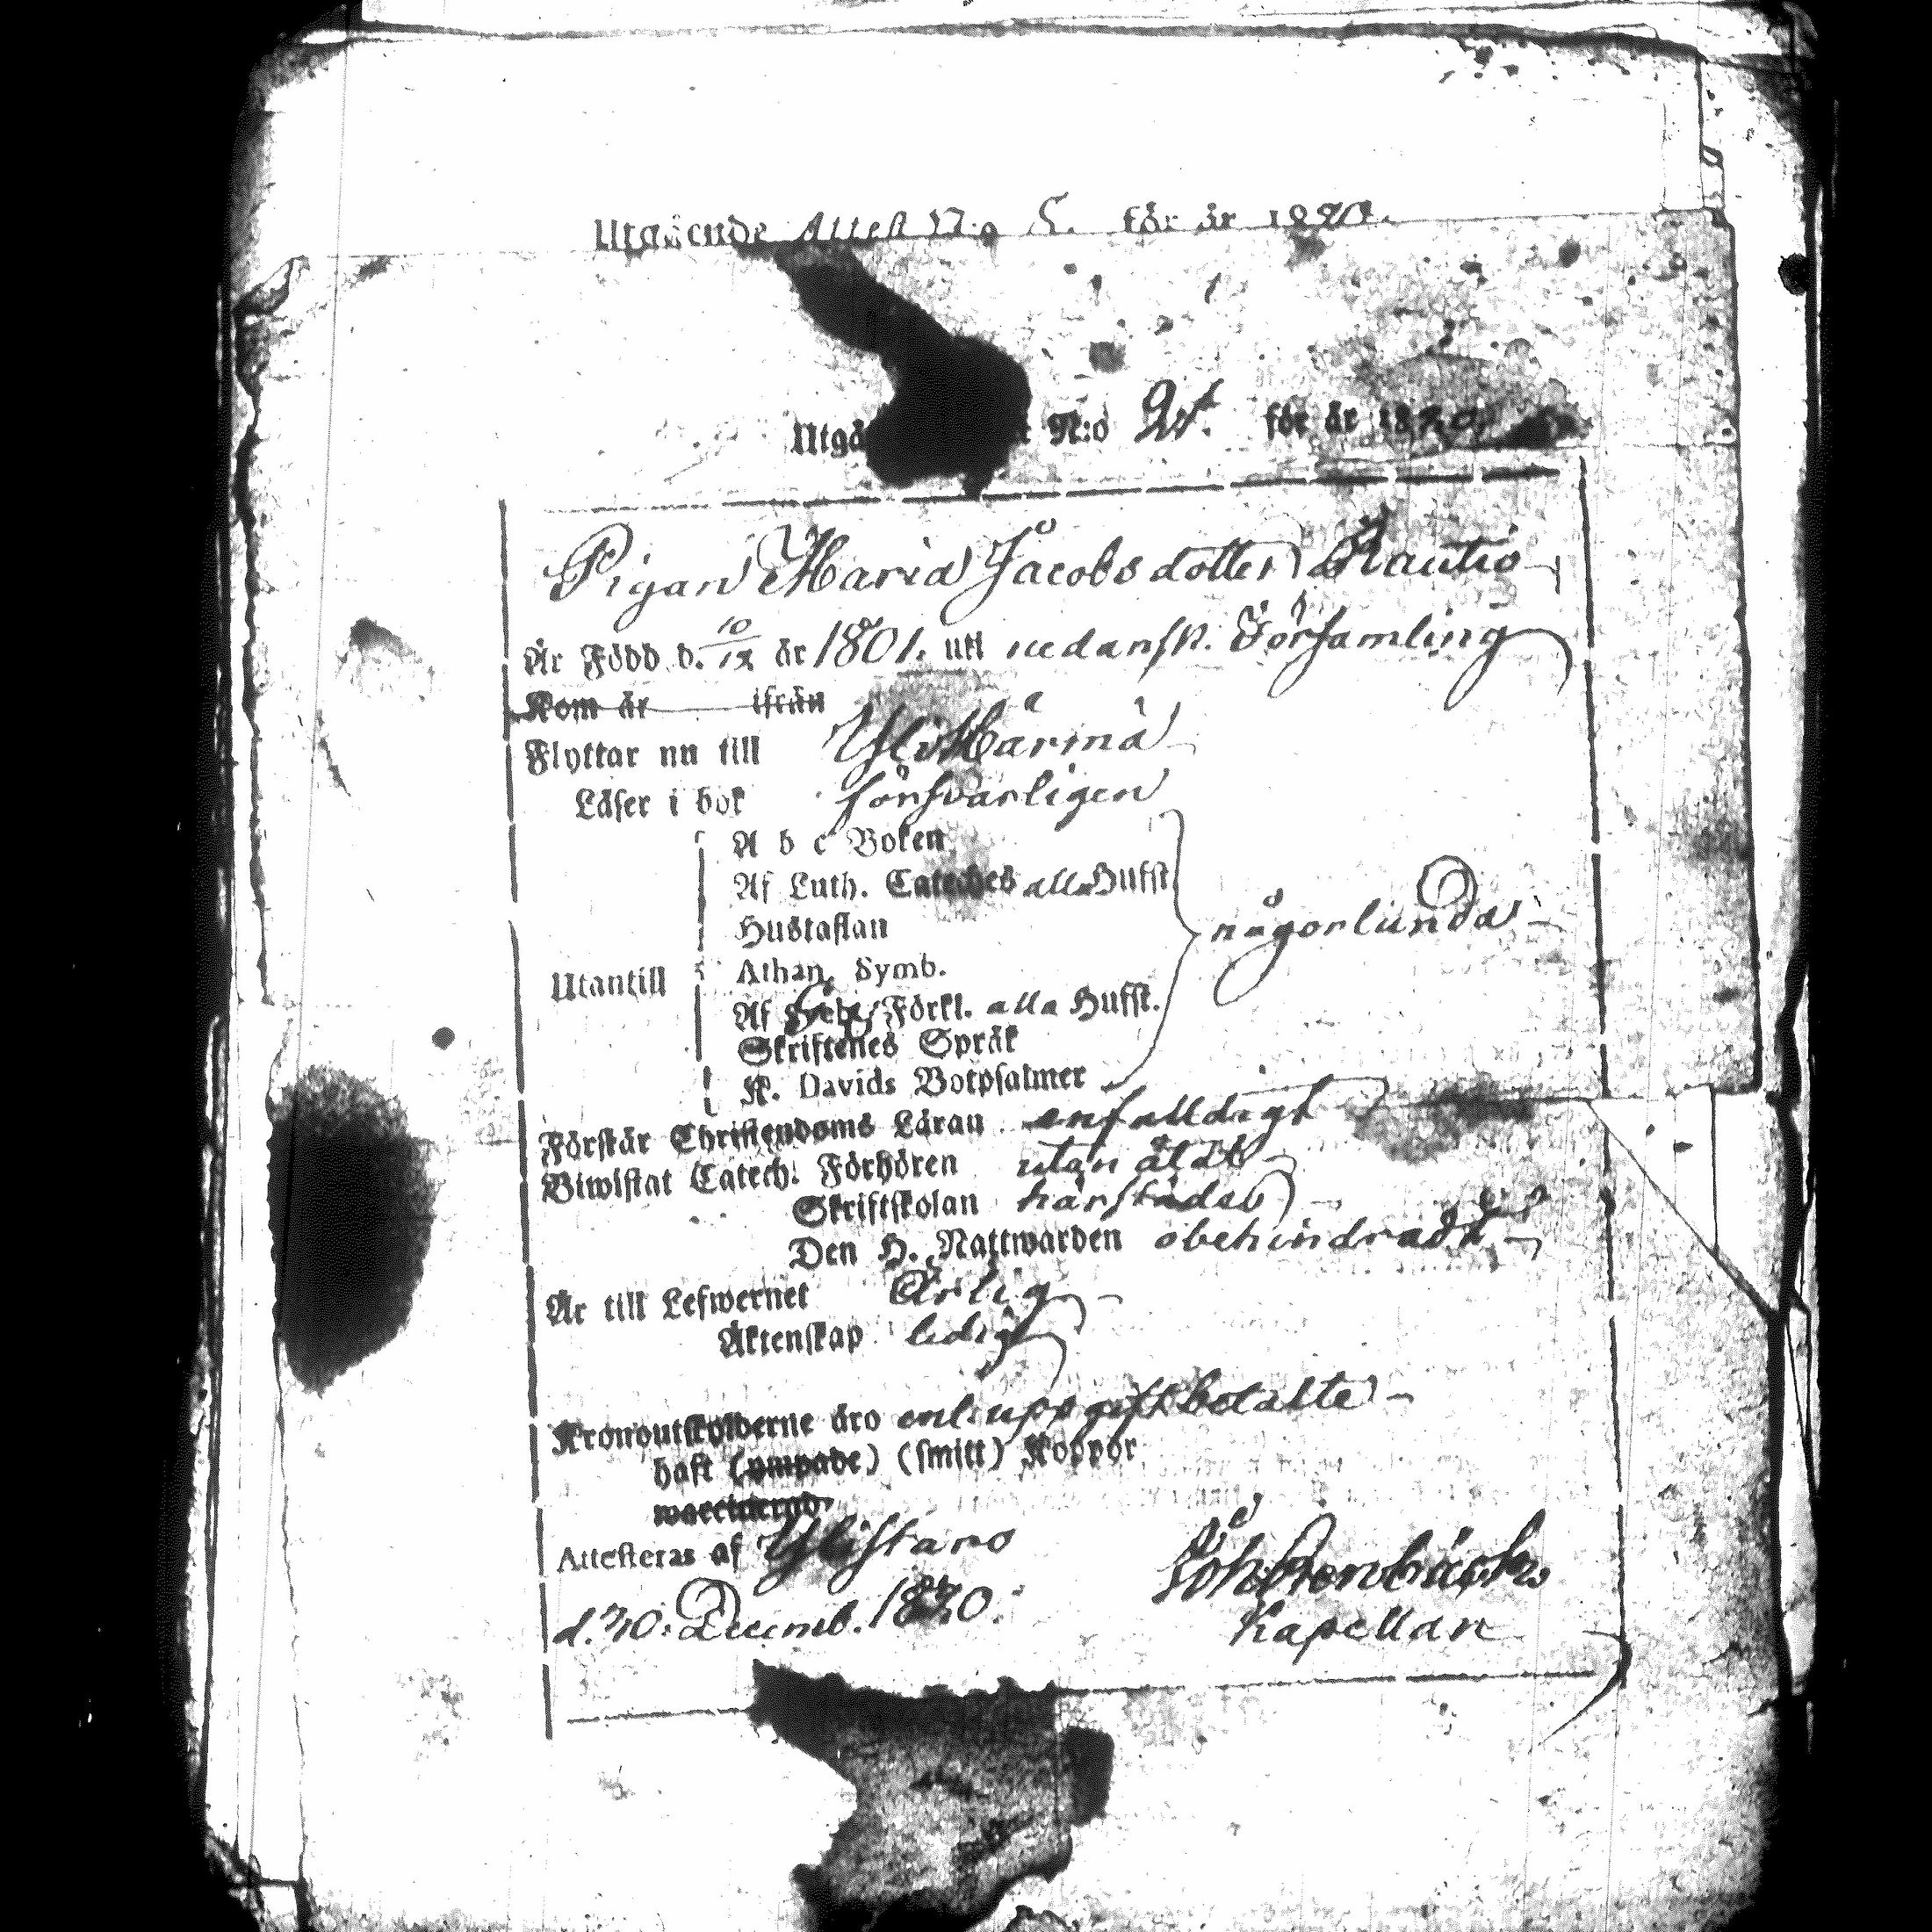 Utgående Attest N:o 5. för år 1830.
Utgå N:o 24. för år 1830.
Pigan Maria Jacobsdotter Rautio
Är Född d. 10/12 år 1801. uti nedansk. Församling
Kom år ifrån
Flyttar nu till Ylihärmä
Läser i bok försvarligen
A b c Boken
Af Luth. Cateches alla Hufst.
Hustaflan
någorlunda
Athan. Symb.
Utantill
Af Förkl. alla Hufst.
Skriftenes Språk
K. Davids Botpsalmer
Förstår Christendoms Läran enfalldigt
Biwistat Catech. Förhören utan åtal
Skriftskolan härstädes
Den H. Nattwarden obehindradt
Är till Lefwernet Ärlig
Äktenskap ledig
Kronoutskylderne äro enl. uppgift betalte
haft (ympade) (smitt) Koppor
Attesteras af Ylistaro
d. 30. Decemb. 1830.
Kapellan